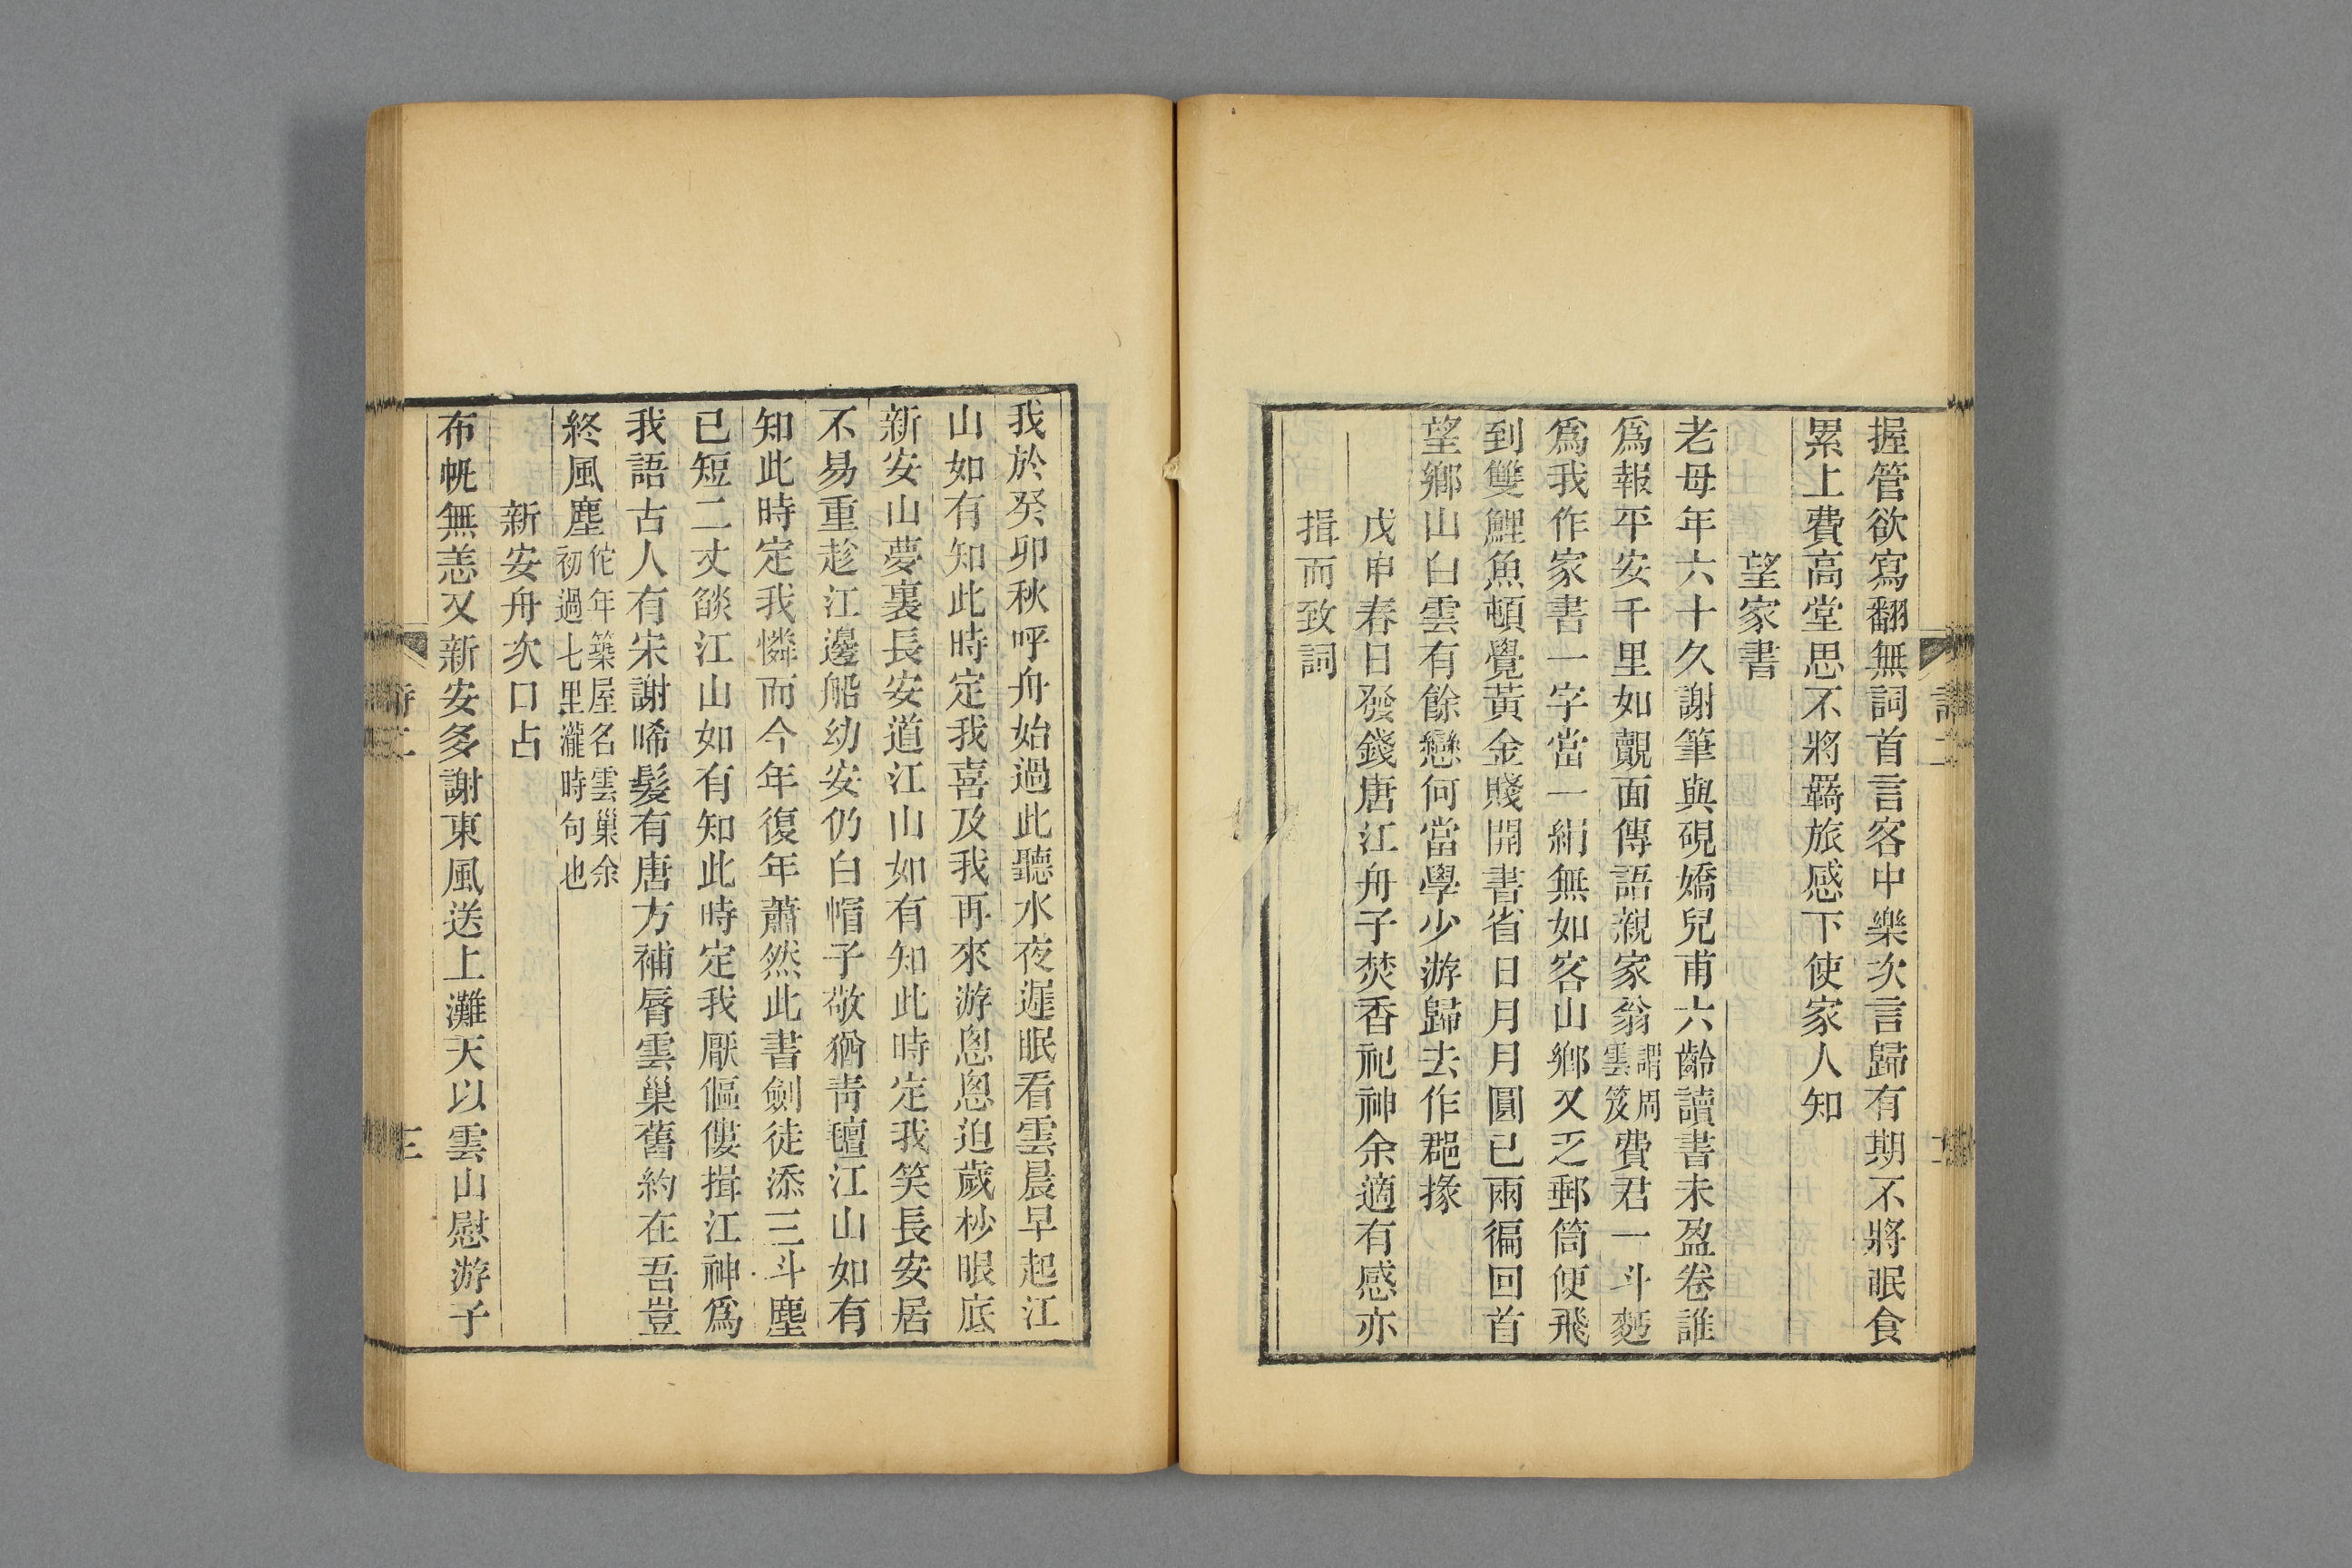 握管欲寫翻無詞首言客中樂次言歸有期不將眠食
累上費高堂思不將羇旅感下使家人知
望家書
老母年六十久謝筆與硯嬌兒甫六齡讀書未盈卷誰
爲報平安千里如覿面傳語親家翁謂周雲笈費君一斗麪
爲我作家書一字當一絹無如客山鄕又乏郵筒便飛
到雙鯉魚頓覺黃金賤開書省日月月圓已兩徧回首
望鄕山白雲有餘戀何當學少游歸去作郡掾
戊申春日發錢唐江舟子焚香祀神余適有感亦
揖而致詞
我於癸卯秋呼舟始過此聽水夜遲眠看雲晨早起江
山如有知此時定我喜及我再來游悤悤迫歲杪眼底
新安山夢裏長安道江山如有知此時定我笑長安居
不易重趁江邊船幼安仍白帽子敬猶靑氊江山如有
知此時定我憐而今年復年蕭然此書劍徒添三斗塵
已短二丈燄江山如有知此時定我厭傴僂揖江神爲
我語古人有宋謝晞髮有唐方補脣雲巢舊約在吾豈
終風塵佗年築屋名雲巢余初過七里瀧時句也
新安舟次口占
布帆無恙又新安多謝東風送上灘天以雲山慰游子
詩二
三